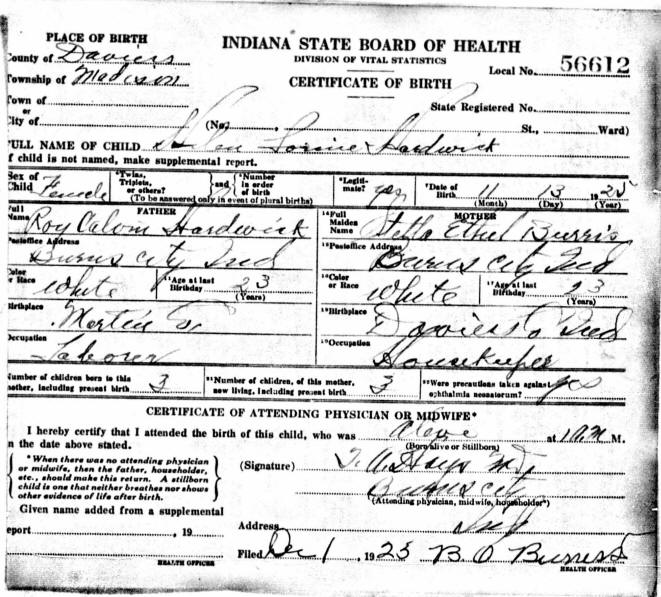 PLACE OF BIRTH
County of Daviess
Township of Madison
Town of
or
City of
INDIANA STATE BOARD OF HEALTH
DIVISION OF VITAL STATISTICS
CERTIFICATE OF BIRTH
Local No. 56612
State Registered No.
(No. St., Ward)
FULL NAME OF CHILD Hardwick
If child is not named, make supplemental report.
Sex of Child Female
Twins, Triplets, or others?
and
Number in order of birth
(To be answered only in event of plural births)
Legitimate? yes
Date of Birth 11 13 1925
(Month) (Day) (Year)
FATHER
Full Name Roy Calvin Hardwick
Postoffice Address Burns City Ind
Color or Race White
Age at last Birthday 23
(Years)
Birthplace Martin
Occupation Laborer
MOTHER
14 Full Maiden Name Stella Ethel Burris
15 Postoffice Address Burns City Ind
16 Color or Race White
17 Age at last Birthday 23
(Years)
18 Birthplace Daviess Co Ind
19 Occupation Housekeeper
Number of children born to this mother, including present birth 3
21 Number of children, of this mother, now living, including present birth 3
22 Were precautions taken against ophthalmia neonatorum? yes
CERTIFICATE OF ATTENDING PHYSICIAN OR MIDWIFE*
I hereby certify that I attended the birth of this child, who was Alive at 1 A M M.
(Born alive or Stillborn)
on the date above stated.
*When there was no attending physician
or midwife, then the father, householder,
etc., should make this return. A stillborn
child is one that neither breathes nor shows
other evidence of life after birth.
(Signature)
Burns City
(Attending physician, midwife, householder*)
Given name added from a supplemental
report , 19
HEALTH OFFICER
Address Ind
Filed Dec 1, 1925 B. O. Burress
HEALTH OFFICER